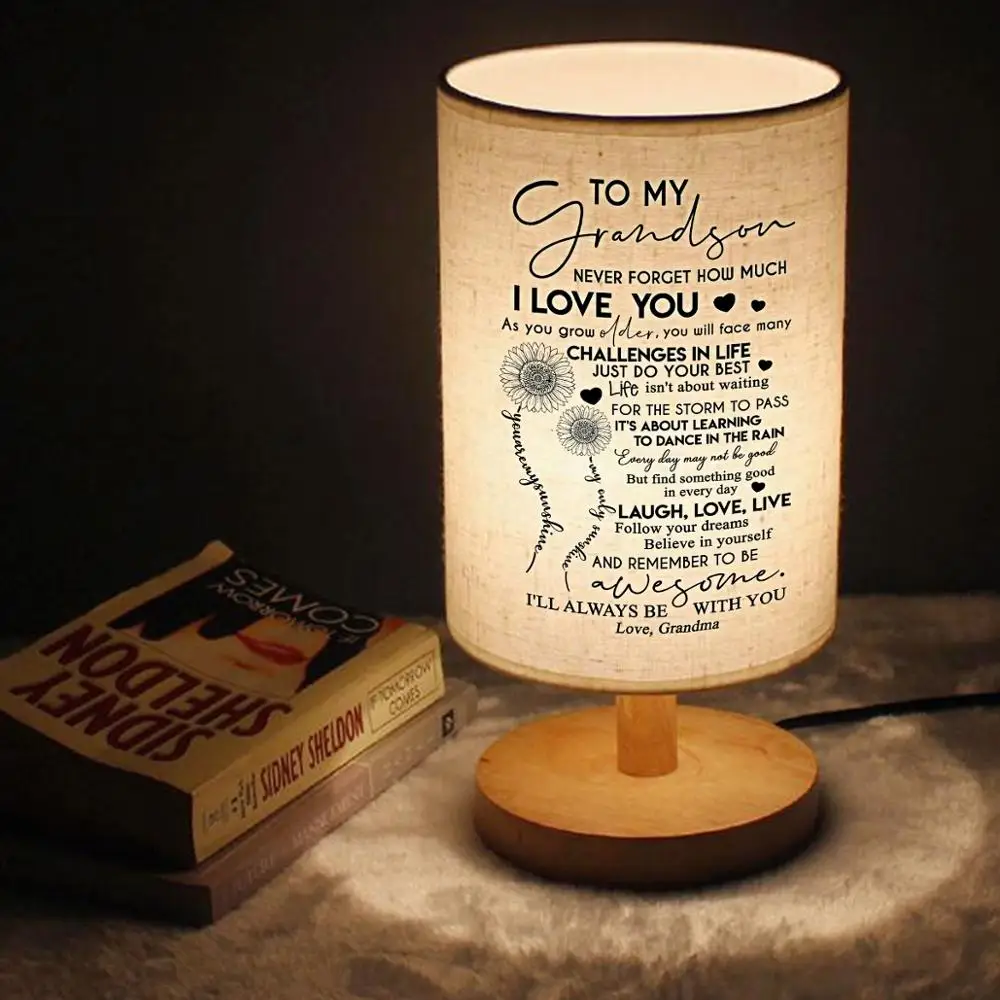 TO MY
Grandson
NEVER FORGET HOW MUCH
I LOVE YOU
As you grow older, you will face many
CHALLENGES IN LIFE
JUST DO YOUR BEST
Life isn't about waiting
FOR THE STORM TO PASS
IT'S ABOUT LEARNING
TO DANCE IN THE RAIN
Every day may not be good
But find something good
in every day
LAUGH, LOVE, LIVE
Follow your dreams
Believe in yourself
AND REMEMBER TO BE
awesome.
I'LL ALWAYS BE WITH YOU
Love, Grandma
youaremysunshine
my only sunshine
IF TOMORROW
COMES
SIDNEY
SHELDON
SIDNEY SHELDON
IF TOMORROW
COMES